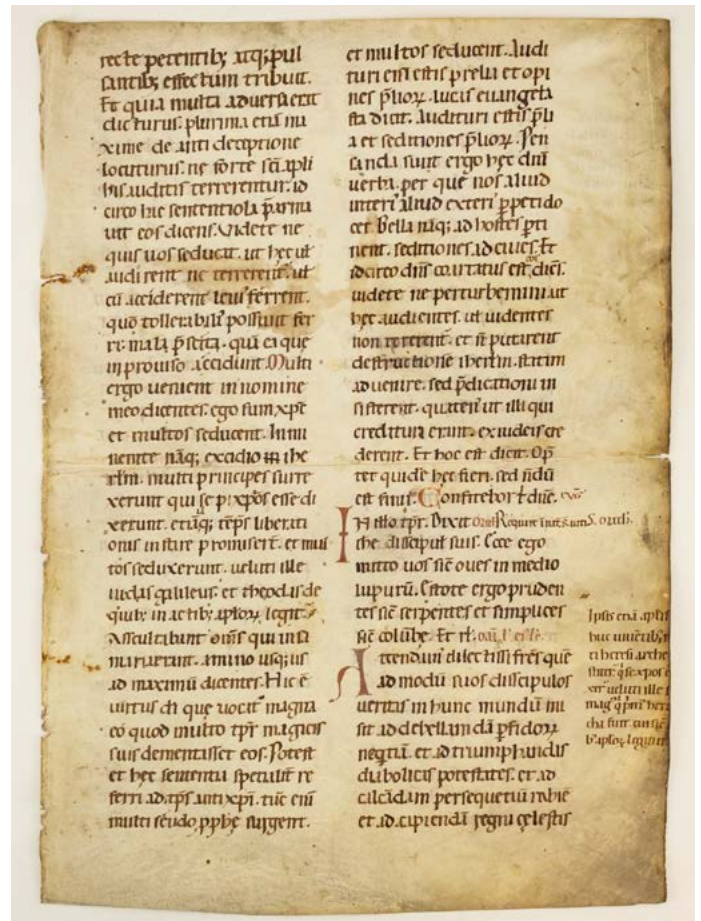 recte petentib; atq; pul
santib; effectum tribuit.
Et quia multa adversa erat
dicturus. plurima etiā ma
xime de anti deceptione
locuturus. ne forte sc̄i apłi
his auditis terrerentur. id
circo hic sententiola p̄armа
uit eos dicens. Videte ne
quis uos seducat. ut hęc ut
audirent ne terrerent᷑. ut
cū acciderent leui᷑ ferrent.
quō tollerabili᷑ possunt fer
ri mala p̄scita. quā ea que
inproviso accidunt. Multi
ergo uenient in nomine
meo dicentes. ego sum xp̄c
et multos seducent. Inmi
nente nāq; excidio ihe
rłm. multi principes surre
xerunt qui se p̱ xp̄os esse di
xerunt. etiāq; tēps liberati
onis instare promiserт̄. et mul
tos seduxerunt. ueluti ille
iudas galileus. et theodas de
quib; in actib; apłoꝝ legit᷑.
Ascultabant om̄s qui in sa
maria erant. a minimo usq; 
ad maximū dicentes. Hic ē
uirtus dī que uocat᷑ magna
eo quod multo tp̄r magicis
suis dementasset eos. Potest
et hęc sententia specialit᷑ re
ferri ad tp̄s anti xp̄i. tūc eni
multi seudo p̱phę surgent.
et multos seducent. Audi
turi eni estis prelia et opi
nes p̄lioꝝ. lucas euangeli
sta dicit. Audituri estis p̄li
a et seditiones p̄lioꝝ. Sen
sanda sunt ergo hęc dn̄i
uerba. per que nos aliud
interi᷑ aliud exteri᷑ p̱petido
cet. Bella nāq; ad hostes p̱ti
nent. seditiones ad ciues. Et
idcirco dn̄s cohortatus est dicēs.
uidete ne perturbemini. ut
hęc audientes. ut uidentes
non terrerent᷑. et n̄ putarent
destructione iherłm. statim
aduenire. sed p̄dicationi in
sisterent. quaten᷑ ut illi qui
credituri erant. ex iudeis cre
derent. Et hoc est dicit. Op̄
tet quidē hęc fieri. sed n̄dū
est finis. Confitebor t̄ dn̄e.
In illo tp̄r. Dixit
ihc discipulis suis. Ecce ego
mitto uos sic̄ oues in medio
luporū. Estote ergo pruden
tes sic̄ serpentes et simplices
sic̄ colūbę. Et rł.
Attendim᷑ dilectissi fr̄es que
ad modū suos discipulos
ueritas in hunc mundum mi
sit ad debellandā p̱fidoꝝ
nequitiā. et ad triumphandas
diabolicas potestates. et ad
calcādam persequetiū rabiē
et ad capiendā regni cęlestis
Ipsis etiā apłis
huc uiuētib;
ti heresi arche
se xp̄os ē
ueluti ille
mag᷑ q̇ prim᷑ her
cha fuit
apłoꝝ legunt᷑